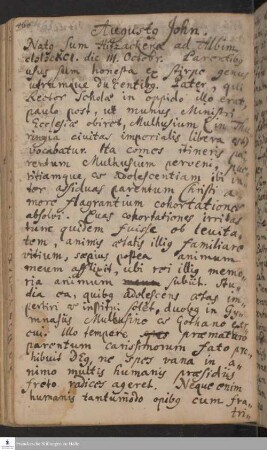 Augusto John.
Natus sum Hitzackerae ad Albim
die III. Octobr. Parentibus
usus sum honesta e stirpe genus
utrumque ducentibus. Pater, qui
Rector Scholae in oppido illo erat,
paulo post, ut munus Ministri
Ecclesiae obiret, Mulhusium
ringia civitas imperialis libera est
vocabatur. Ita comes itineris pa-
rentum Mulhusium perveni, pue-
ritiamque, et adolescentiam ibi in-
ter assiduas parentum Christi a-
more flagrantium cohortationes
absolvi. Quas cohortationes irritas
tunc quidem fuisse ob levita-
tem, animis aetatis illius familiare
vitium, saepius postea animum
meum afflixit, ubi rei illius memo-
ria animum subiit. Stu-
dia ea, quibus adolescens aetas im-
pertiri et institui solet, duobus in Gy-
mnasiis Mulhusino et Gothano
Illo tempore praematuro
parentum carissimorum fato pro-
hibuit Deus, ne spes vana in a-
nimo multis humanis praesidiis
freto radices ageret. Neque enim
humanis tantummodo opibus cum fra-
tri-